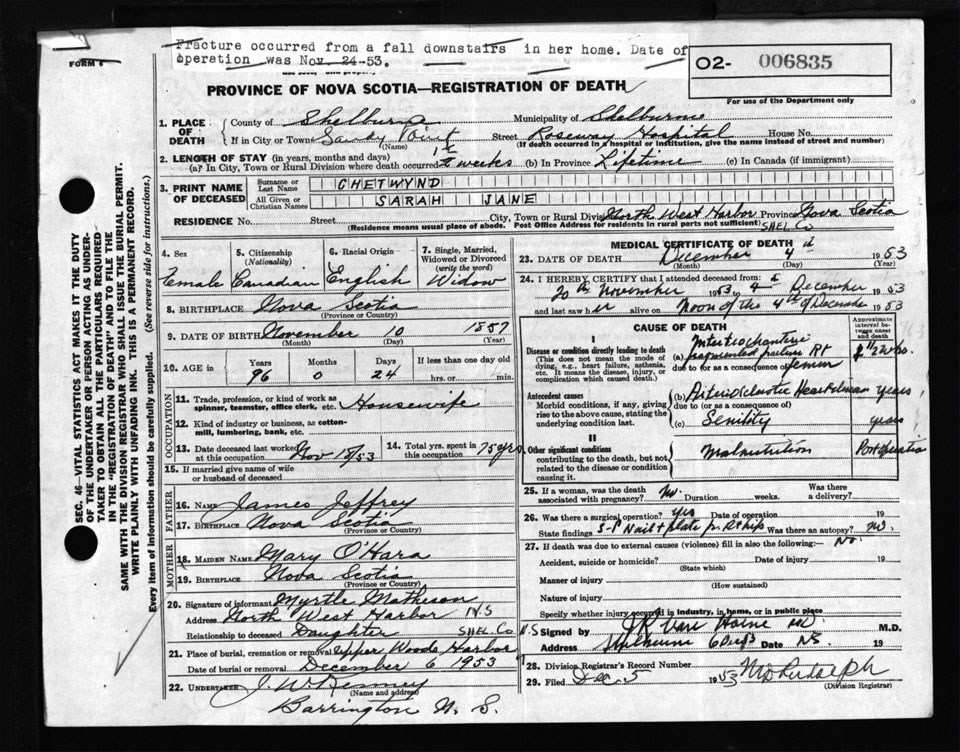 Fracture occurred from a fall downstairs in her home. Date of
operation was Nov. 24-53.
FORM 6
O2- 006835
For use of the Department only
PROVINCE OF NOVA SCOTIA—REGISTRATION OF DEATH
1. PLACE OF DEATH
County of Shelburne Municipality of Shelburne
If in City or Town Sandy Point Street Roseway Hospital House No.
(Name) (If death occurred in a hospital or institution, give the name instead of street and number)
2. LENGTH OF STAY (in years, months and days)
(a) In City, Town or Rural Division where death occurred 2 weeks (b) In Province Lifetime (c) In Canada (if immigrant)
3. PRINT NAME OF DECEASED
Surname or Last Name CHETWYND
All Given or Christian Names SARAH JANE
RESIDENCE No. Street City, Town or Rural Division North West Harbor Province Nova Scotia
(Residence means usual place of abode. Post Office Address for residents in rural parts not sufficient) SHEL Co
4. Sex 5. Citizenship (Nationality) 6. Racial Origin 7. Single, Married, Widowed or Divorced (write the word)
Female Canadian English Widow
8. BIRTHPLACE Nova Scotia
(Province or Country)
9. DATE OF BIRTH November 10 1857
(Month) (Day) (Year)
10. AGE in Years Months Days If less than one day old
96 0 24 hrs. or min.
OCCUPATION
11. Trade, profession, or kind of work as spinner, teamster, office clerk, etc. Housewife
12. Kind of industry or business, as cotton-mill, lumbering, bank, etc.
13. Date deceased last worked at this occupation Nov 18/53 14. Total yrs. spent in this occupation 75 yrs
15. If married give name of wife or husband of deceased
FATHER
16. Name James Jeffrey
17. Birthplace Nova Scotia
(Province or Country)
MOTHER
18. MAIDEN NAME Mary O'Hara
19. BIRTHPLACE Nova Scotia
(Province or Country)
20. Signature of informant Myrtle Matheson
Address North West Harbor N.S
Relationship to deceased Daughter SHEL Co
21. Place of burial, cremation or removal Upper Woods Harbor
Date of burial or removal December 6 1953
22. UNDERTAKER J. W. Kenney
(Name and address)
Barrington N. S.
MEDICAL CERTIFICATE OF DEATH
23. DATE OF DEATH December 4 1953
(Month) (Day) (Year)
24. I HEREBY CERTIFY that I attended deceased from
20 th November 1953 to 4th December 1953
and last saw her alive on Noon of the 4th of December 1953
CAUSE OF DEATH
Approximate interval between onset and death
I
Disease or condition directly leading to death
(This does not mean the mode of dying, e.g., heart failure, asthenia, etc. It means the disease, injury, or complication which caused death.)
Intertrochanteric
(a) fragmented fracture Rt
due to (or as a consequence of) femur
Antecedent causes
Morbid conditions, if any, giving rise to the above cause, stating the underlying condition last.
(b) Arteriosclerotic Heart disease years
due to (or as a consequence of)
(c) Senility years
II
Other significant conditions
contributing to the death, but not related to the disease or condition causing it.
Malnutrition
25. If a woman, was the death associated with pregnancy? No. Duration weeks. Was there a delivery?
26. Was there a surgical operation? yes Date of operation 19
State findings S-P Nail + plate for Rt hip Was there an autopsy? no.
27. If death was due to external causes (violence) fill in also the following:— No.
Accident, suicide or homicide? Date of injury 19
(State which)
Manner of injury
(How sustained)
Nature of injury
Specify whether injury occurred in industry, in home, or in public place
N.S Signed by Van Horne M.D.
Address Shelburne Date NS 19
28. Division Registrar's Record Number
29. Filed Dec. 5 1953
(Division Registrar)
SEC. 46—VITAL STATISTICS ACT MAKES IT THE DUTY
OF THE UNDERTAKER OR PERSON ACTING AS UNDER-
TAKER TO OBTAIN ALL THE PARTICULARS REQUIRED
IN THE "REGISTRATION OF DEATH" AND TO FILE THE
SAME WITH THE DIVISION REGISTRAR WHO SHALL ISSUE THE BURIAL PERMIT.
WRITE PLAINLY WITH UNFADING INK. THIS IS A PERMANENT RECORD.
Every item of information should be carefully supplied. (See reverse side for instructions.)